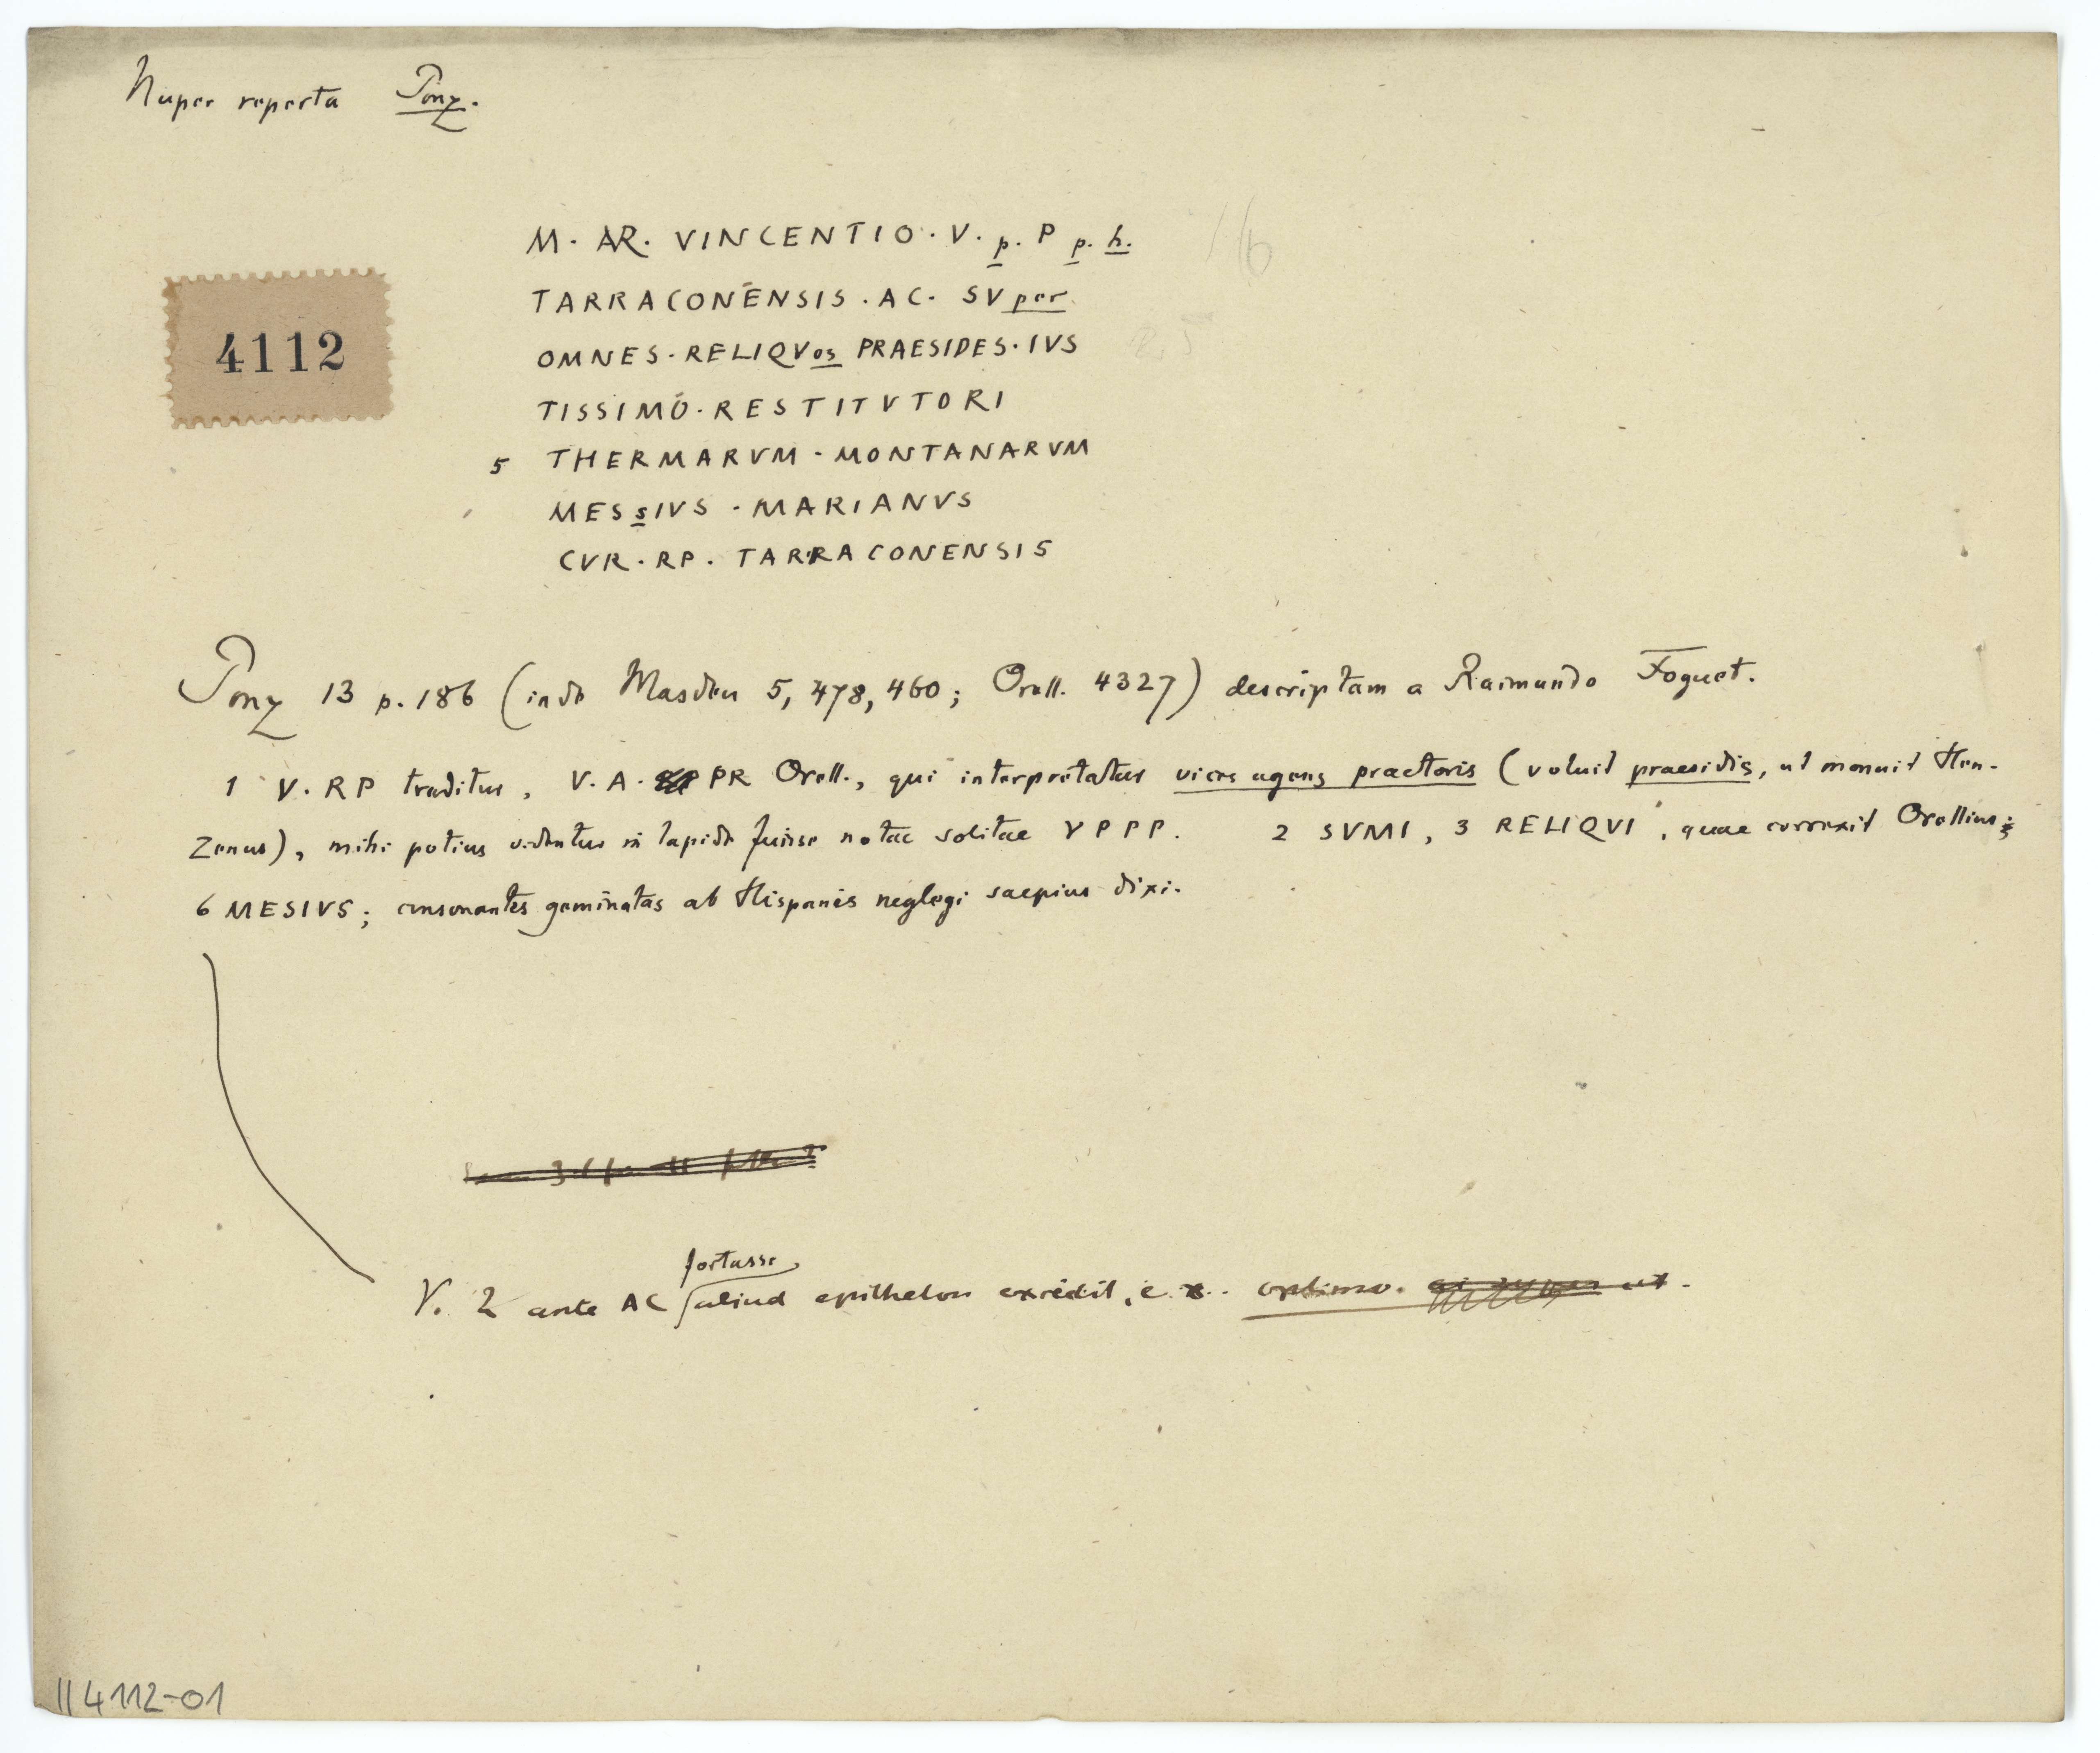 Nuper reperta Ponz.
M. AR. VINCENTIO. V. p. P p. h.
TARRACONENSIS. AC. SVper
4112
OMNES. RELIQVos PRAESIDES. IVS
TISSIMO. RESTITVTORI
5 THERMARVM. MONTANARVM
MESsIVS. MARIANVS
CVR. RP. TARRACONENSIS
Ponz 13 p. 186 (inde Masdeu 5, 478, 460; Orell. 4327) descriptam a Raimundo Foguet.
1 V. RP traditur, V. A. PR Orell., qui interpretatur vices agens praetoris (voluit praesidis, ut monuit Hen-
zenus), mihi potius videntur in lapide fuisse notae solitae VPPP. 2 SVMI, 3 RELIQVI, quae correxit Orellius;
6 MESIVS; consonantes geminatas ab Hispanis neglegi saepius dixi.
fortasse
V. 2 ante AC aliud epitheton excidit, e. x. optimo.
II 4112-01